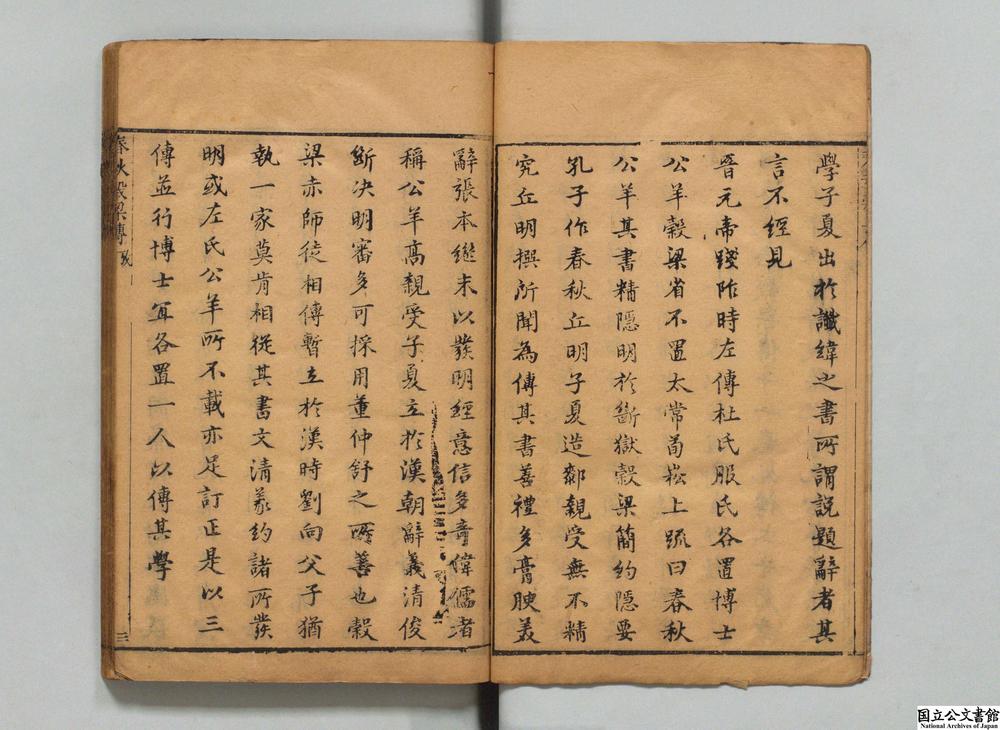 學子夏出於讖緯之書所謂説題辭者其
言不經見
晉元帝踐阼時左傳杜氏服氏各置博士
公羊穀梁省不置太常荀崧上疏曰春秋
公羊其書精隱明於斷獄穀梁簡約隱要
孔子作春秋丘明子夏造鄰親受無不精
究丘明撰所聞為傳其書善禮多膏腴美
辭張本繼末以發明經意信多奇偉儒者
稱公羊高親受子夏立於漢朝辭義清俊
斷决明審多可採用董仲舒之所善也穀
梁赤師徒相傳暫立於漢時劉向父子猶
執一家莫肯相從其書文清義約諸所發
明或左氏公羊所不載亦足訂正是以三
傳並行博士宜各置一人以傳其學
春秋穀梁傳
三
国立公文書館
National Archives of Japan